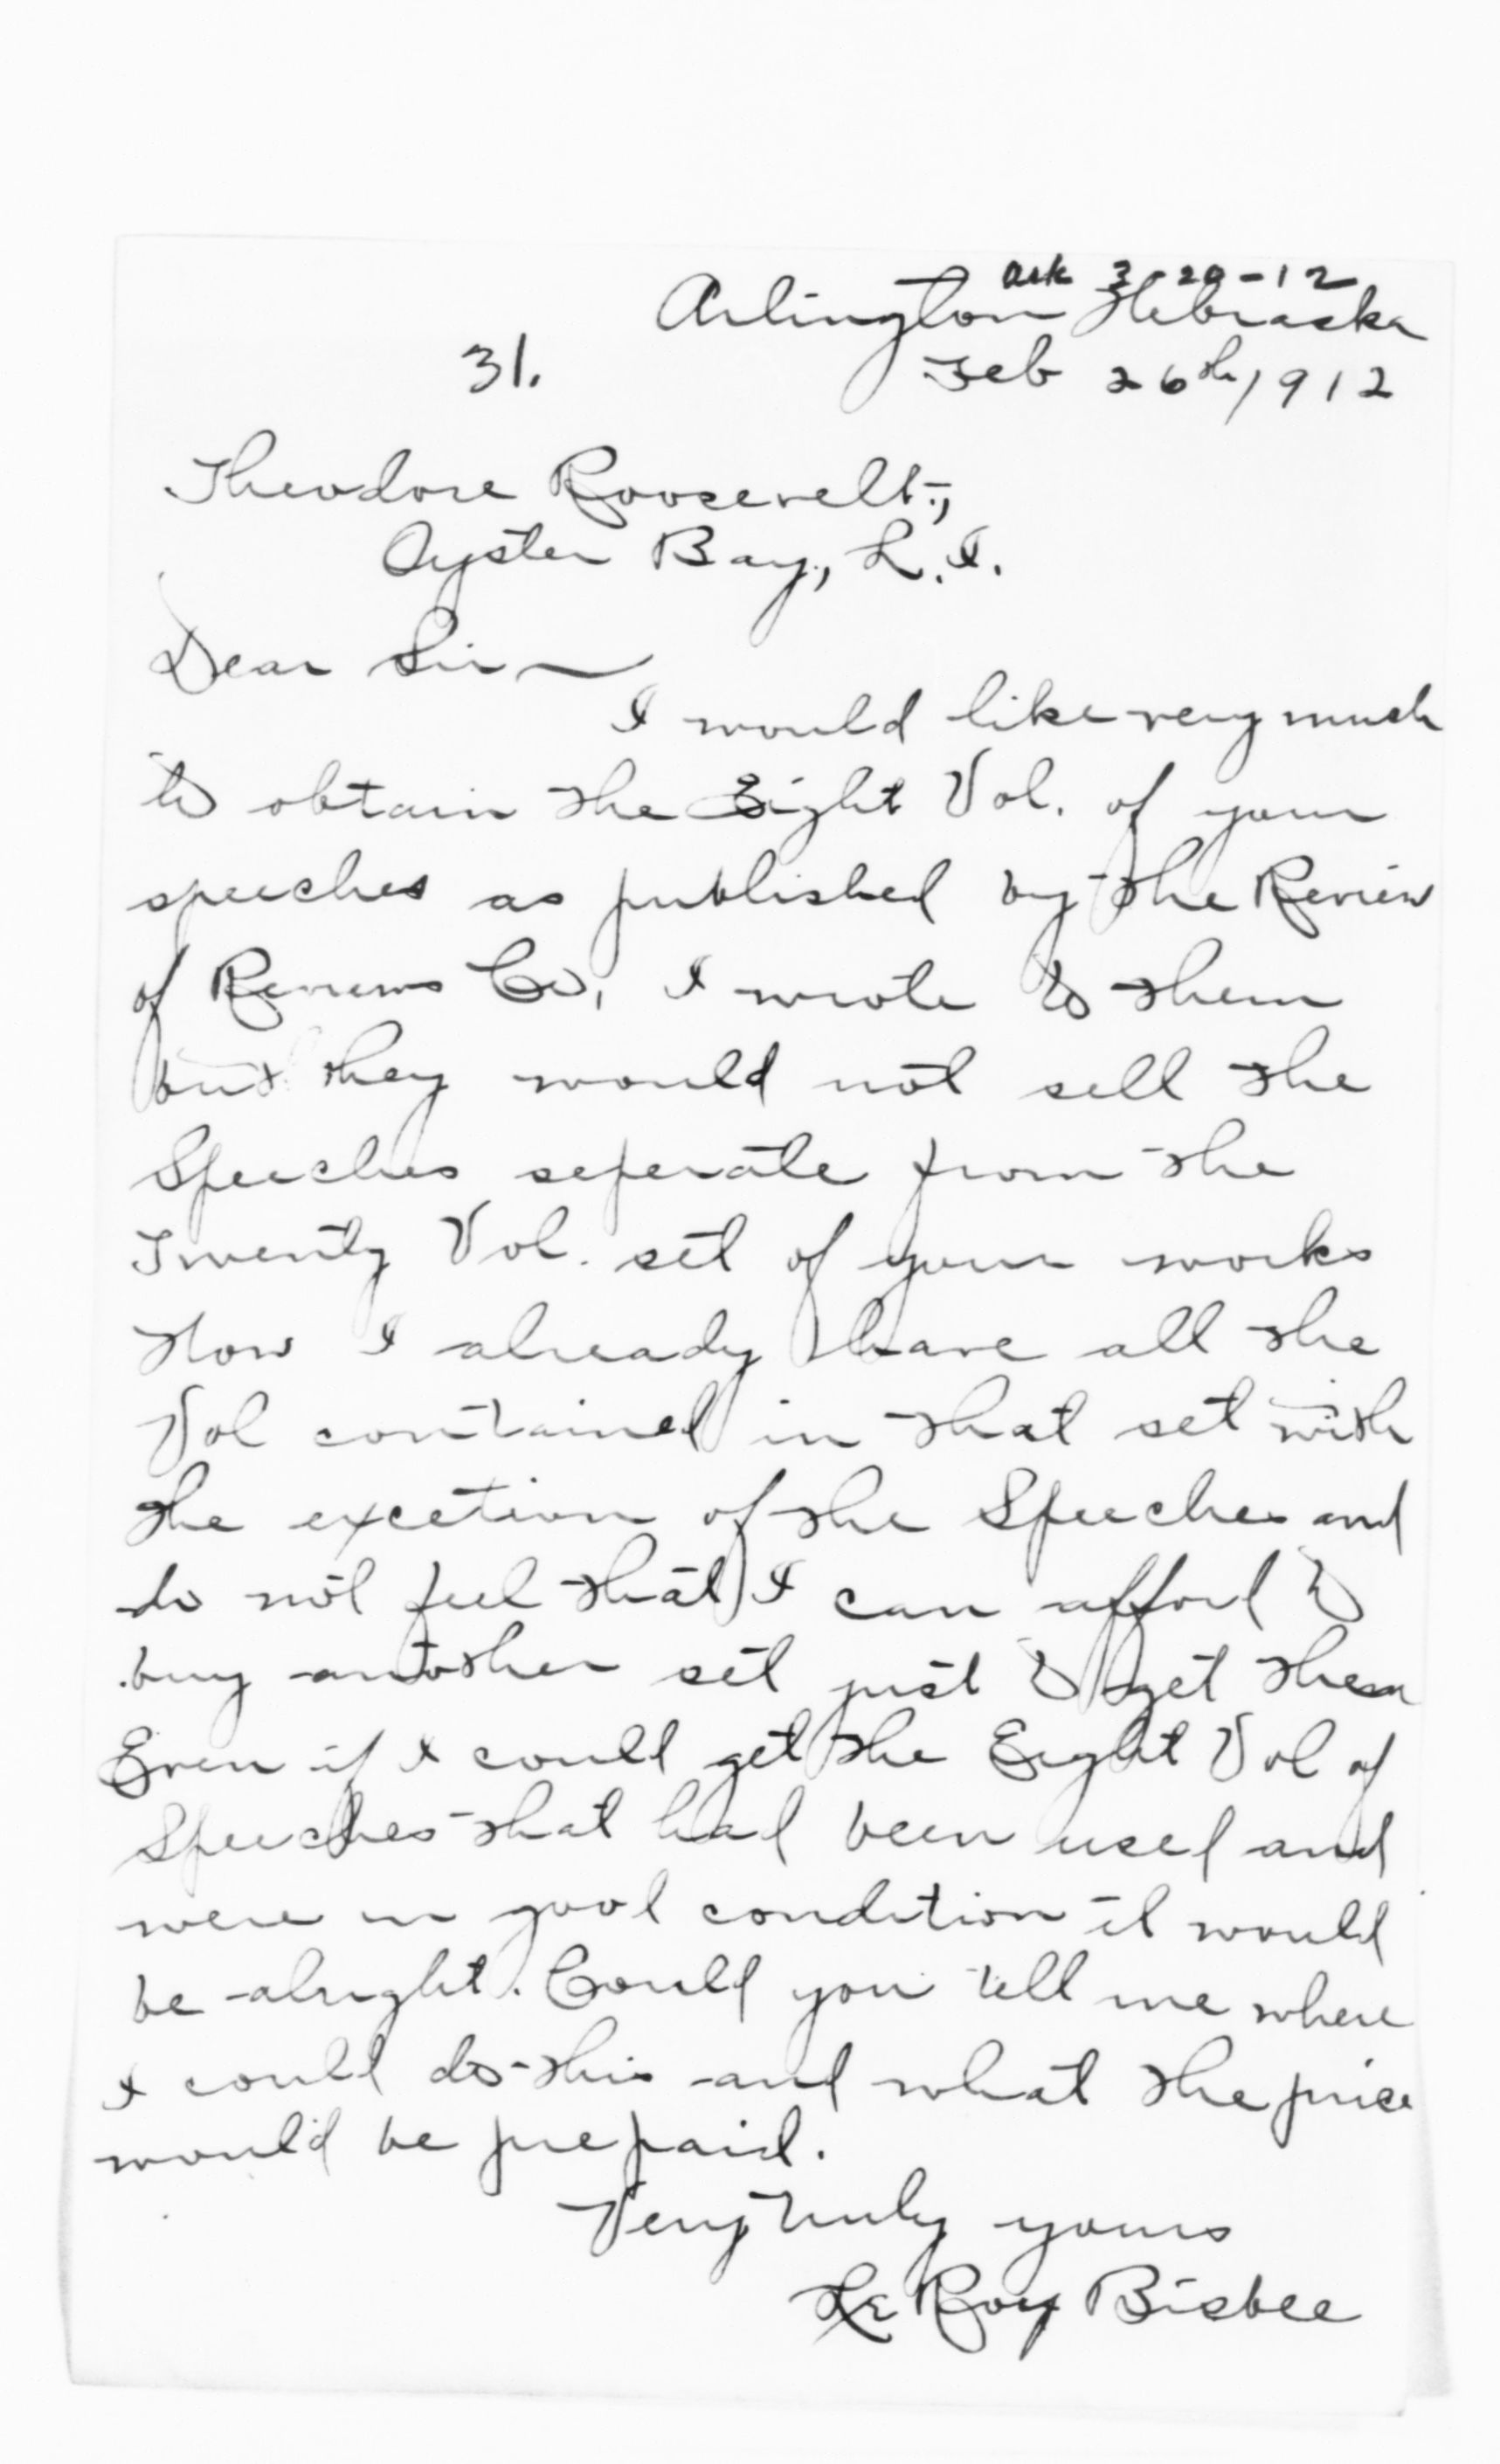 ack 3-20-12
Arlington Nebraska
31.
Feb 26th/1912
Theodore Roosevelt.,
Oyster Bay., L.I.
Dear Sir
I would like very much
to obtain the Eight Vol. of your
speeches as published by the Review
of Reviews Co. I wrote to them
but they would not sell the
Speeches seperate from the
Twenty Vol. set of your works
Now I already have all the
Vol contained in that set with
the excetion of the Speeches and
do not feel that I can afford to
buy another set just to get them
Even if I could get the Eight Vol of
Speeches that had been used and
were in good condition it would
be alright. Could you tell me where
I could do this and what the price
would be prepaid.
Very truly yours
Le Roy Bisbee